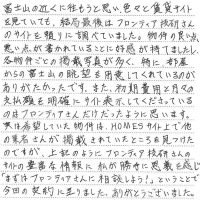 富士山の近くに住もうと思い、色々と賃貸サイト
を見ていても、結局最後はフロンティア技研さん
のサイトを頼りに調べていました。物件の良い点、
悪い点が書かれていることに好感が持てましたし、
各物件ごとの掲載写真が多く、特に、部屋
からの富士山の眺望を用意してくれているのが
ありがたかったです。また、初期費用と月々の
支払額を明確にサイト表示してくださっている
のはフロンティアさんだけだったように思います。
実は希望していた物件は、HOMESサイト上で他
の業者さんが掲載されていたところを見つけた
のですが、上記のようにフロンティア技研さんの
サイトの豊富な情報に私が勝手に恩義を感じ
「まずはフロンティアさんに相談しよう!」ということで
今回の契約に至りました。ありがとうございました。